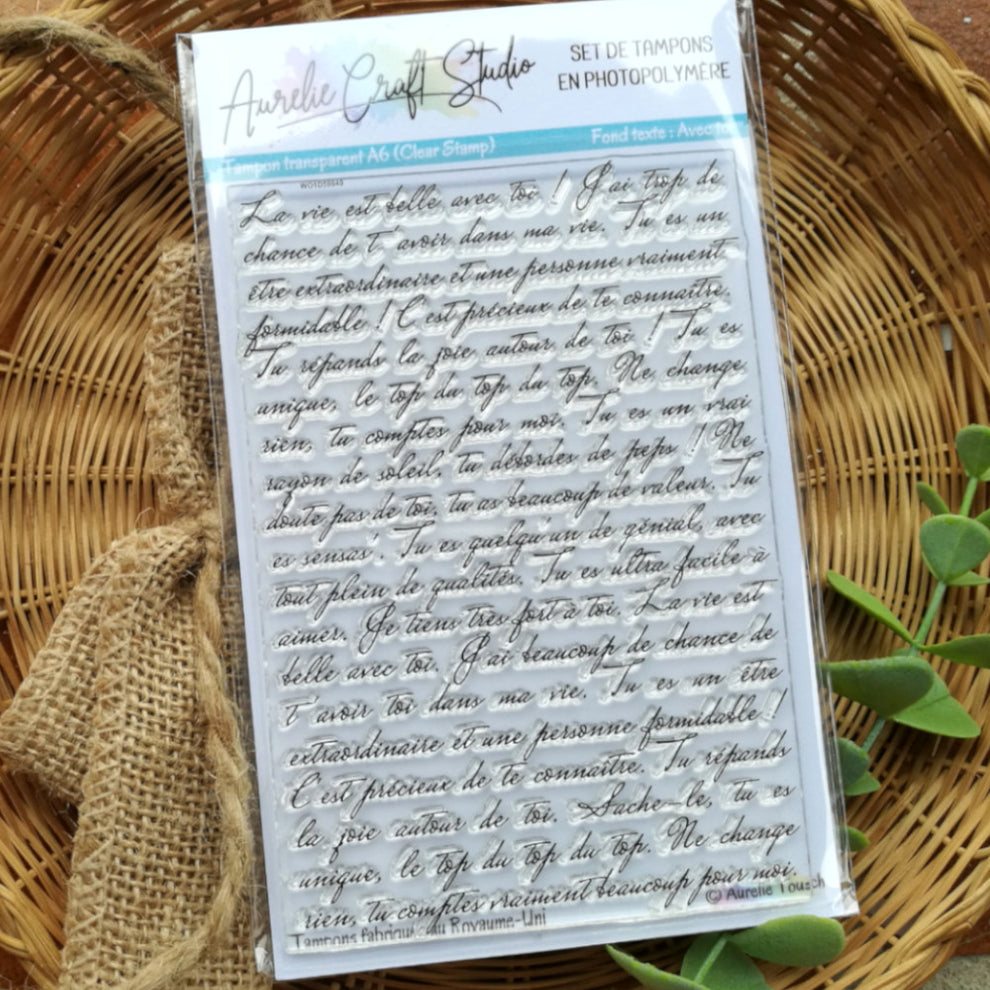 Aurelie Craft Studio
SET DE TAMPONS
EN PHOTOPOLYMÈRE
Tampon transparent A6 (Clear Stamp)
Fond texte : Avec toi
La vie est belle avec toi ! J'ai trop de
chance de t'avoir dans ma vie. Tu es un
être extraordinaire et une personne vraiment
formidable ! C'est précieux de te connaître.
Tu répands la joie autour de toi ! Tu es
unique, le top du top du top. Ne change
rien, tu comptes pour moi. Tu es un vrai
rayon de soleil, tu débordes de peps ! Ne
doute pas de toi, tu as beaucoup de valeur. Tu
es sensas'. Tu es quelqu'un de génial, avec
tout plein de qualités. Tu es ultra facile à
aimer. Je tiens très fort à toi. La vie est
belle avec toi. J'ai beaucoup de chance de
t'avoir toi dans ma vie. Tu es un être
extraordinaire et une personne formidable !
C'est précieux de te connaître. Tu répands
la joie autour de toi. Sache-le, tu es
unique, le top du top du top. Ne change
rien, tu comptes vraiment beaucoup pour moi.
© Aurelie Tousch
Tampons fabriqués au Royaume-Uni